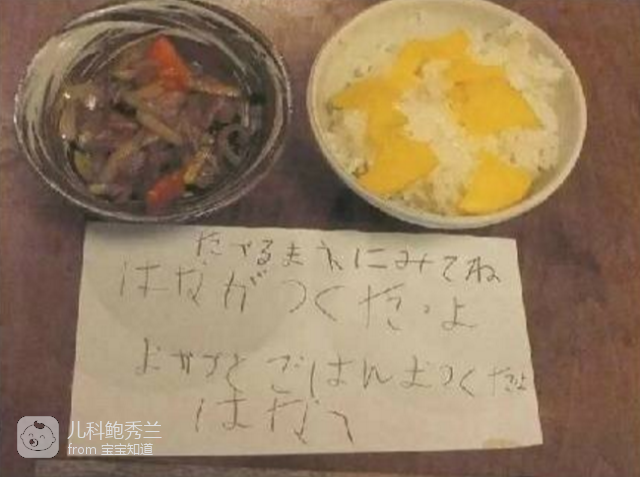 たべるまえにみてね
はながつくたつよ
おかずとごはんおつくたよ
はなへ
儿科鲍秀兰
from 宝宝知道